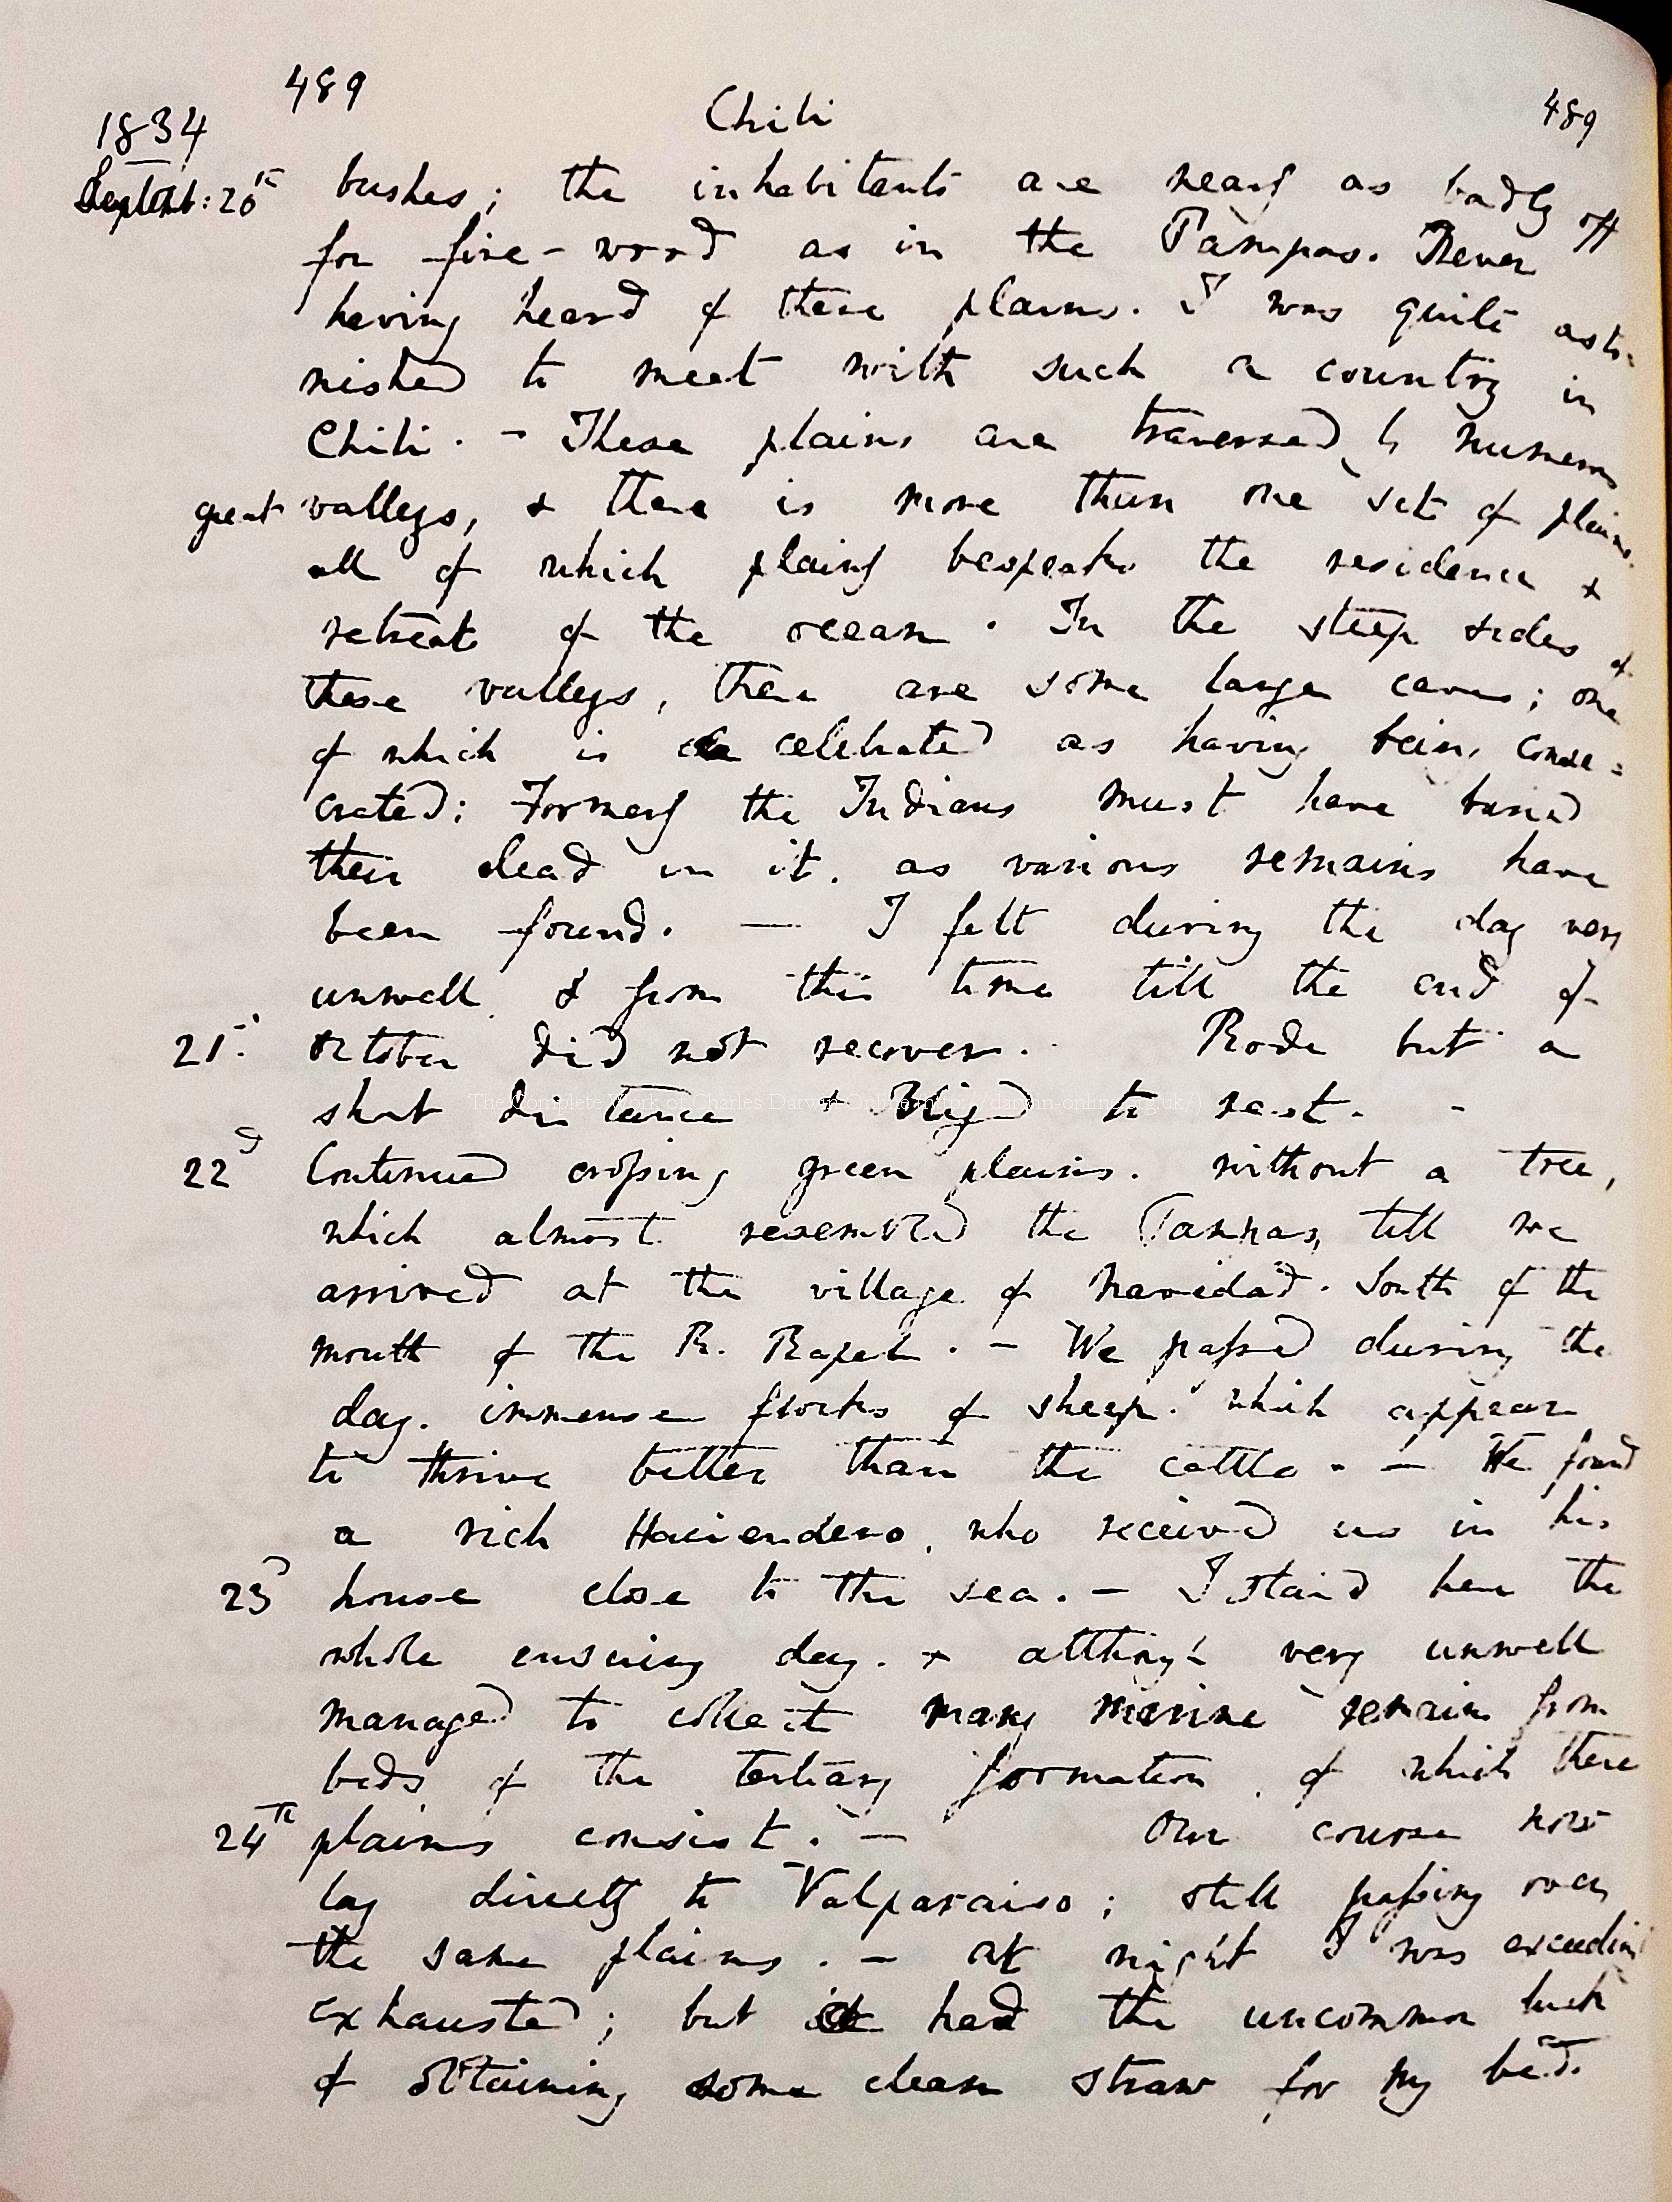 489 Chili 489
1834
Septemb: 20th bushes; the inhabitants are nearly as badly off
for fire-wood as in the Pampas. Never
having heard of these plains. I was quite asto-
nished to meet with such a country in
Chili. - These plains are traversed by numerous
great valleys, & there is more than one set of plains,
all of which plainly bespeaks the residence &
retreat of the ocean. In the steep sides of
these valleys, there are some large caves; one
of which is celebrated as having being conse=
crated: Formerly the Indians must have buried
their dead in it. as various remains have
been found. — I felt during the day very
unwell & from this time till the end of
21st October did not recover. Rode but a
short distance & obliged to rest. -
22d Continued crossing green plains. without a tree,
which almost resembled the Pampas, till we
arrived at the village of Navidad. South of the
mouth of the R. Rapel. - We passed during the
day. immense flocks of sheep. which appear
to thrive better than the cattle. - We found
a rich Haciendero, who received us in his
23d house close to the sea. - I staid here the
whole ensuing day. & although very unwell
managed to collect many marine remains from
beds of the tertiary formation, of which these
24th plains consist. - Our course now
lay directly to Valparaiso; still passing over
the same plains. - at night I was exceedingly
exhausted; but had the uncommon luck
of obtaining some clean straw for my bed.
The Complete Work of Charles Darwin Online